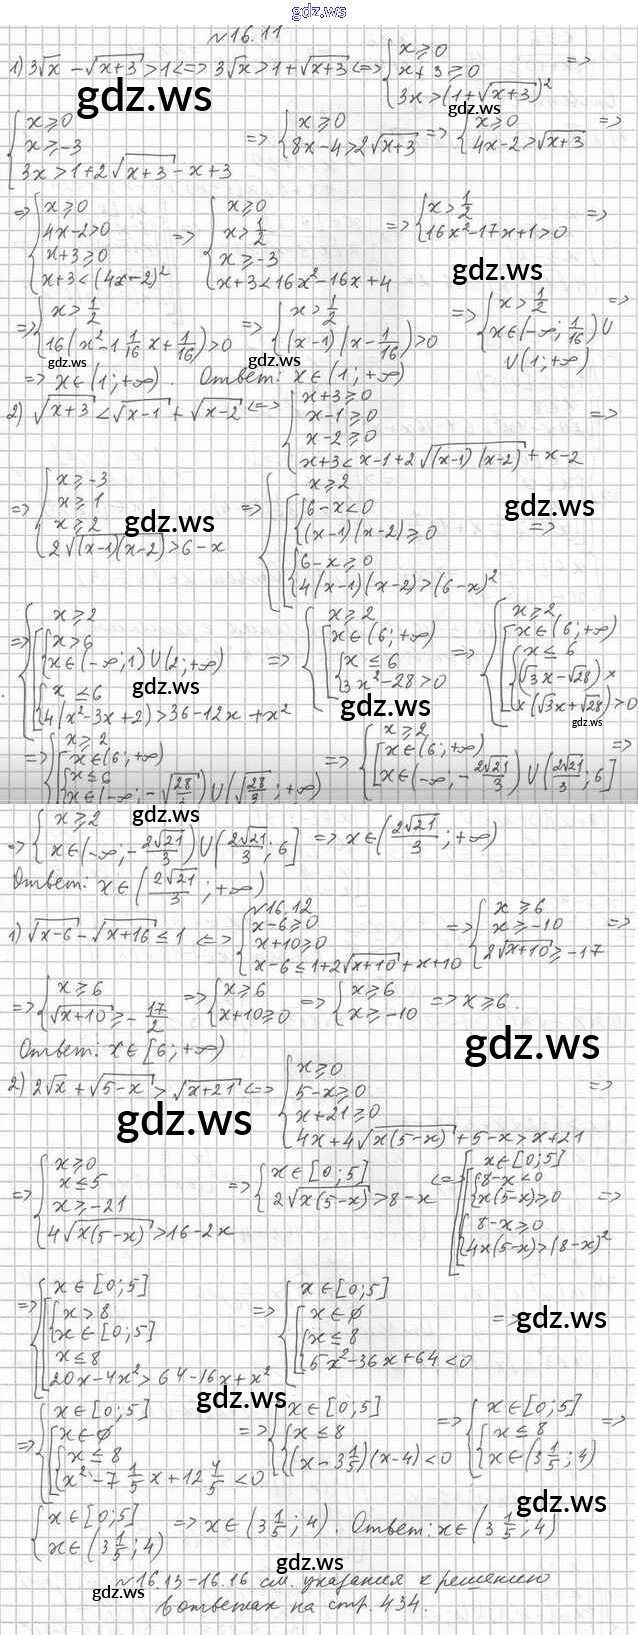 gdz.ws
№16.11
1) 3√x - √(x+3) > 1 <=> 3√x > 1+√(x+3) <=> { x ≥ 0 ; x+3 ≥ 0 ; 3x > (1+√(x+3))² =>
{ x ≥ 0 ; x ≥ -3 ; 3x > 1+2√(x+3) - x+3 => { x ≥ 0 ; 8x-4 > 2√(x+3) => { x ≥ 0 ; 4x-2 > √(x+3) =>
gdz.ws gdz.ws
=> { x ≥ 0 ; 4x-2 > 0 ; x+3 ≥ 0 ; x+3 < (4x-2)² => { x ≥ 0 ; x > 1/2 ; x ≥ -3 ; x+3 < 16x²-16x+4 => { x > 1/2 ; 16x²-17x+1 > 0 =>
gdz.ws
=> { x > 1/2 ; 16(x²-1 1/16 x+1/16) > 0 => { x > 1/2 ; (x-1)(x-1/16) > 0 => { x > 1/2 ; x∈(-∞; 1/16)∪ ∪(1; +∞) =>
gdz.ws gdz.ws
=> x∈(1; +∞). Ответ: x∈(1; +∞)
2) √(x+3) < √(x-1) + √(x-2) <=> { x+3 ≥ 0 ; x-1 ≥ 0 ; x-2 ≥ 0 ; x+3 < x-1+2√((x-1)(x-2)) + x-2 =>
=> { x ≥ -3 ; x ≥ 1 ; x ≥ 2 ; 2√((x-1)(x-2)) > 6-x => { x ≥ 2 ; [ { 6-x < 0 ; (x-1)(x-2) ≥ 0 ; { 6-x ≥ 0 ; 4(x-1)(x-2) > (6-x)² =>
gdz.ws gdz.ws
=> { x ≥ 2 ; [ { x > 6 ; x∈(-∞; 1)∪(2; +∞) ; { x ≤ 6 ; 4(x²-3x+2) > 36-12x+x² => { x ≥ 2 ; [ x∈(6; +∞) ; { x ≤ 6 ; 3x²-28 > 0 => { x ≥ 2 ; [ x∈(6; +∞) ; { x ≤ 6 ; (√3x-√28)× ×(√3x+√28) > 0
gdz.ws gdz.ws gdz.ws
=> { x ≥ 2 ; [ x∈(6; +∞) ; { x ≤ 6 ; x∈(-∞; -√(28/3))∪(√(28/3); +∞) => { x ≥ 2 ; [ x∈(6; +∞) ; x∈(-∞; -2√21/3)∪(2√21/3; 6] =>
gdz.ws
=> { x ≥ 2 ; x∈(-∞; -2√21/3)∪(2√21/3; 6] => x∈(2√21/3; +∞)
Ответ: x∈(2√21/3; +∞)
№16.12
1) √(x-6) - √(x+16) ≤ 1 <=> { x-6 ≥ 0 ; x+10 ≥ 0 ; x-6 ≤ 1+2√(x+10) + x+10 => { x ≥ 6 ; x ≥ -10 ; 2√(x+10) ≥ -17 =>
=> { x ≥ 6 ; √(x+10) ≥ -17/2 => { x ≥ 6 ; x+10 ≥ 0 => { x ≥ 6 ; x ≥ -10 => x ≥ 6.
Ответ: x∈[6; +∞)
gdz.ws
2) 2√x + √(5-x) > √(x+21) <=> { x ≥ 0 ; 5-x ≥ 0 ; x+21 ≥ 0 ; 4x+4√(x(5-x)) + 5-x > x+21 =>
gdz.ws
=> { x ≥ 0 ; x ≤ 5 ; x ≥ -21 ; 4√(x(5-x)) > 16-2x => { x∈[0; 5] ; 2√(x(5-x)) > 8-x <=> { x∈[0; 5] ; [ { 8-x < 0 ; x(5-x) ≥ 0 ; { 8-x ≥ 0 ; 4x(5-x) > (8-x)² =>
=> { x∈[0; 5] ; [ { x > 8 ; x∈[0; 5] ; { x ≤ 8 ; 20x-4x² > 64-16x+x² => { x∈[0; 5] ; [ x∈∅ ; { x ≤ 8 ; 5x²-36x+64 < 0 =>
gdz.ws gdz.ws
=> { x∈[0; 5] ; [ x∈∅ ; { x ≤ 8 ; x²-7 1/5 x+12 4/5 < 0 => { x∈[0; 5] ; { x ≤ 8 ; (x-3 1/5)(x-4) < 0 => { x∈[0; 5] ; { x ≤ 8 ; x∈(3 1/5; 4) =>
gdz.ws
{ x∈[0; 5] ; x∈(3 1/5; 4) => x∈(3 1/5; 4). Ответ: x∈(3 1/5; 4)
gdz.ws
№16.13-16.16 см. указания к решению
gdz.ws
в ответах на стр. 434.